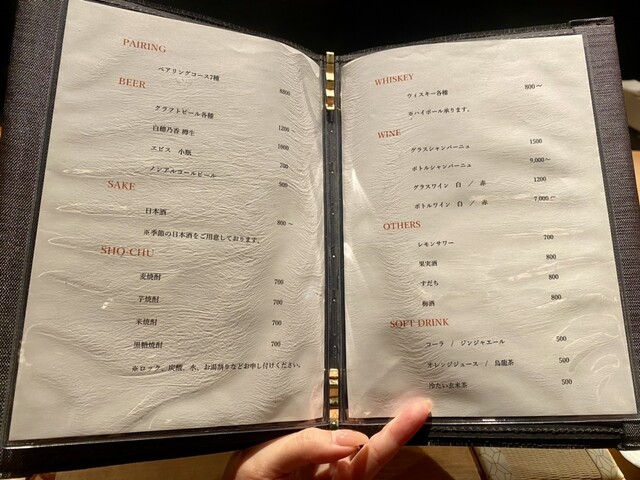 PAIRING
ペアリングコース7種 8800
BEER
クラフトビール各種 1200
白穂乃香 樽生 1000
エビス 小瓶 700
ノンアルコールビール 500
SAKE
日本酒 800～
※季節の日本酒をご用意しております。
SHO-CHU
麦焼酎 700
芋焼酎 700
米焼酎 700
黒糖焼酎 700
※ロック、炭酸、水、お湯割りなどお申し付けください。
WHISKEY
ウィスキー各種 800～
※ハイボール承ります。
WINE
グラスシャンパーニュ 1500
ボトルシャンパーニュ 9,000～
グラスワイン 白 / 赤 1200
ボトルワイン 白 / 赤 7,000～
OTHERS
レモンサワー 700
果実酒 800
すだち 800
梅酒 800
SOFT DRINK
コーラ / ジンジャエール 500
オレンジジュース / 烏龍茶 500
冷たい玄米茶 500